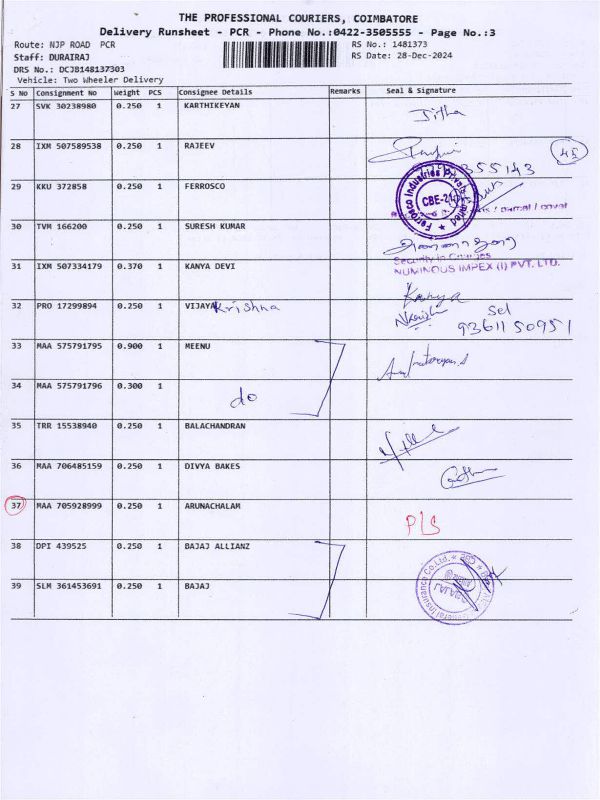 THE PROFESSIONAL COURIERS, COIMBATORE
Delivery Runsheet - PCR - Phone No.:0422-3505555 - Page No.:3
Route: NJP ROAD PCR
RS No.: 1481373
Staff: DURAIRAJ
RS Date: 28-Dec-2024
DRS No.: DCJB148137303
Vehicle: Two Wheeler Delivery
S No Consignment No Weight PCS Consignee Details Remarks Seal & Signature
27 SVK 30238980 0.250 1 KARTHIKEYAN Jitha
28 IXM 507589538 0.250 1 RAJEEV
29 KKU 372858 0.250 1 FERROSCO
Ferrosco Industries Private Limited
CBE-21
30 TVM 166200 0.250 1 SURESH KUMAR
Security in Charges
NUMINOUS IMPEX (I) PVT. LTD.
31 IXM 507334179 0.370 1 KANYA DEVI Kanya
32 PRO 17299894 0.250 1 VIJAYA Krishna
Sel
9361150951
33 MAA 575791795 0.900 1 MEENU
34 MAA 575791796 0.300 1 do
35 TRR 15538940 0.250 1 BALACHANDRAN
36 MAA 706485159 0.250 1 DIVYA BAKES
37 MAA 705928999 0.250 1 ARUNACHALAM PLS
38 DPI 439525 0.250 1 BAJAJ ALLIANZ
39 SLM 361453691 0.250 1 BAJAJ
General Insurance Co.Ltd. * CBE *